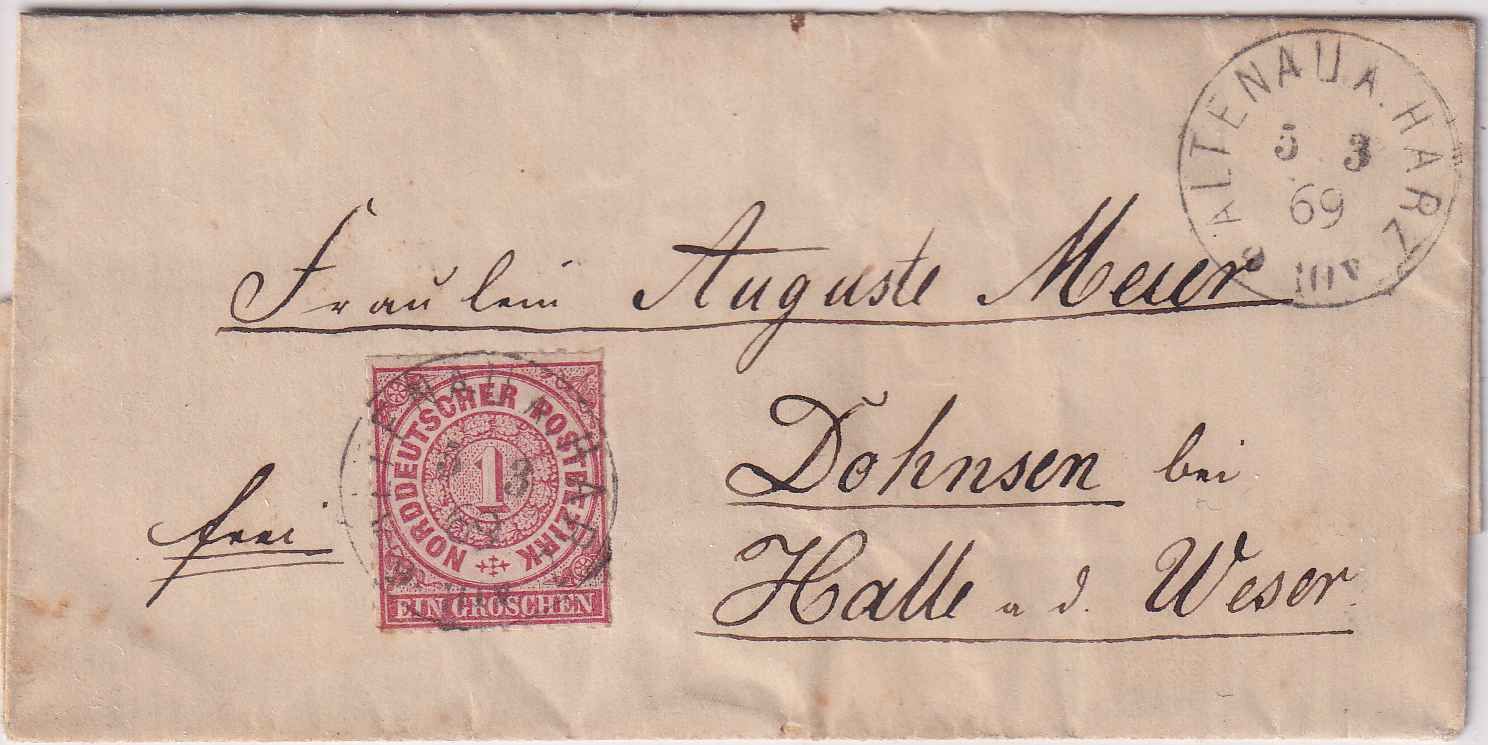 ALTENAU A. HARZ
5 3
69
Fraulein Auguste Meier
Dohnsen bei
Halle a d. Weser.
frei
NORDDEUTSCHER POSTBEZIRK
1
EIN GROSCHEN
5 3